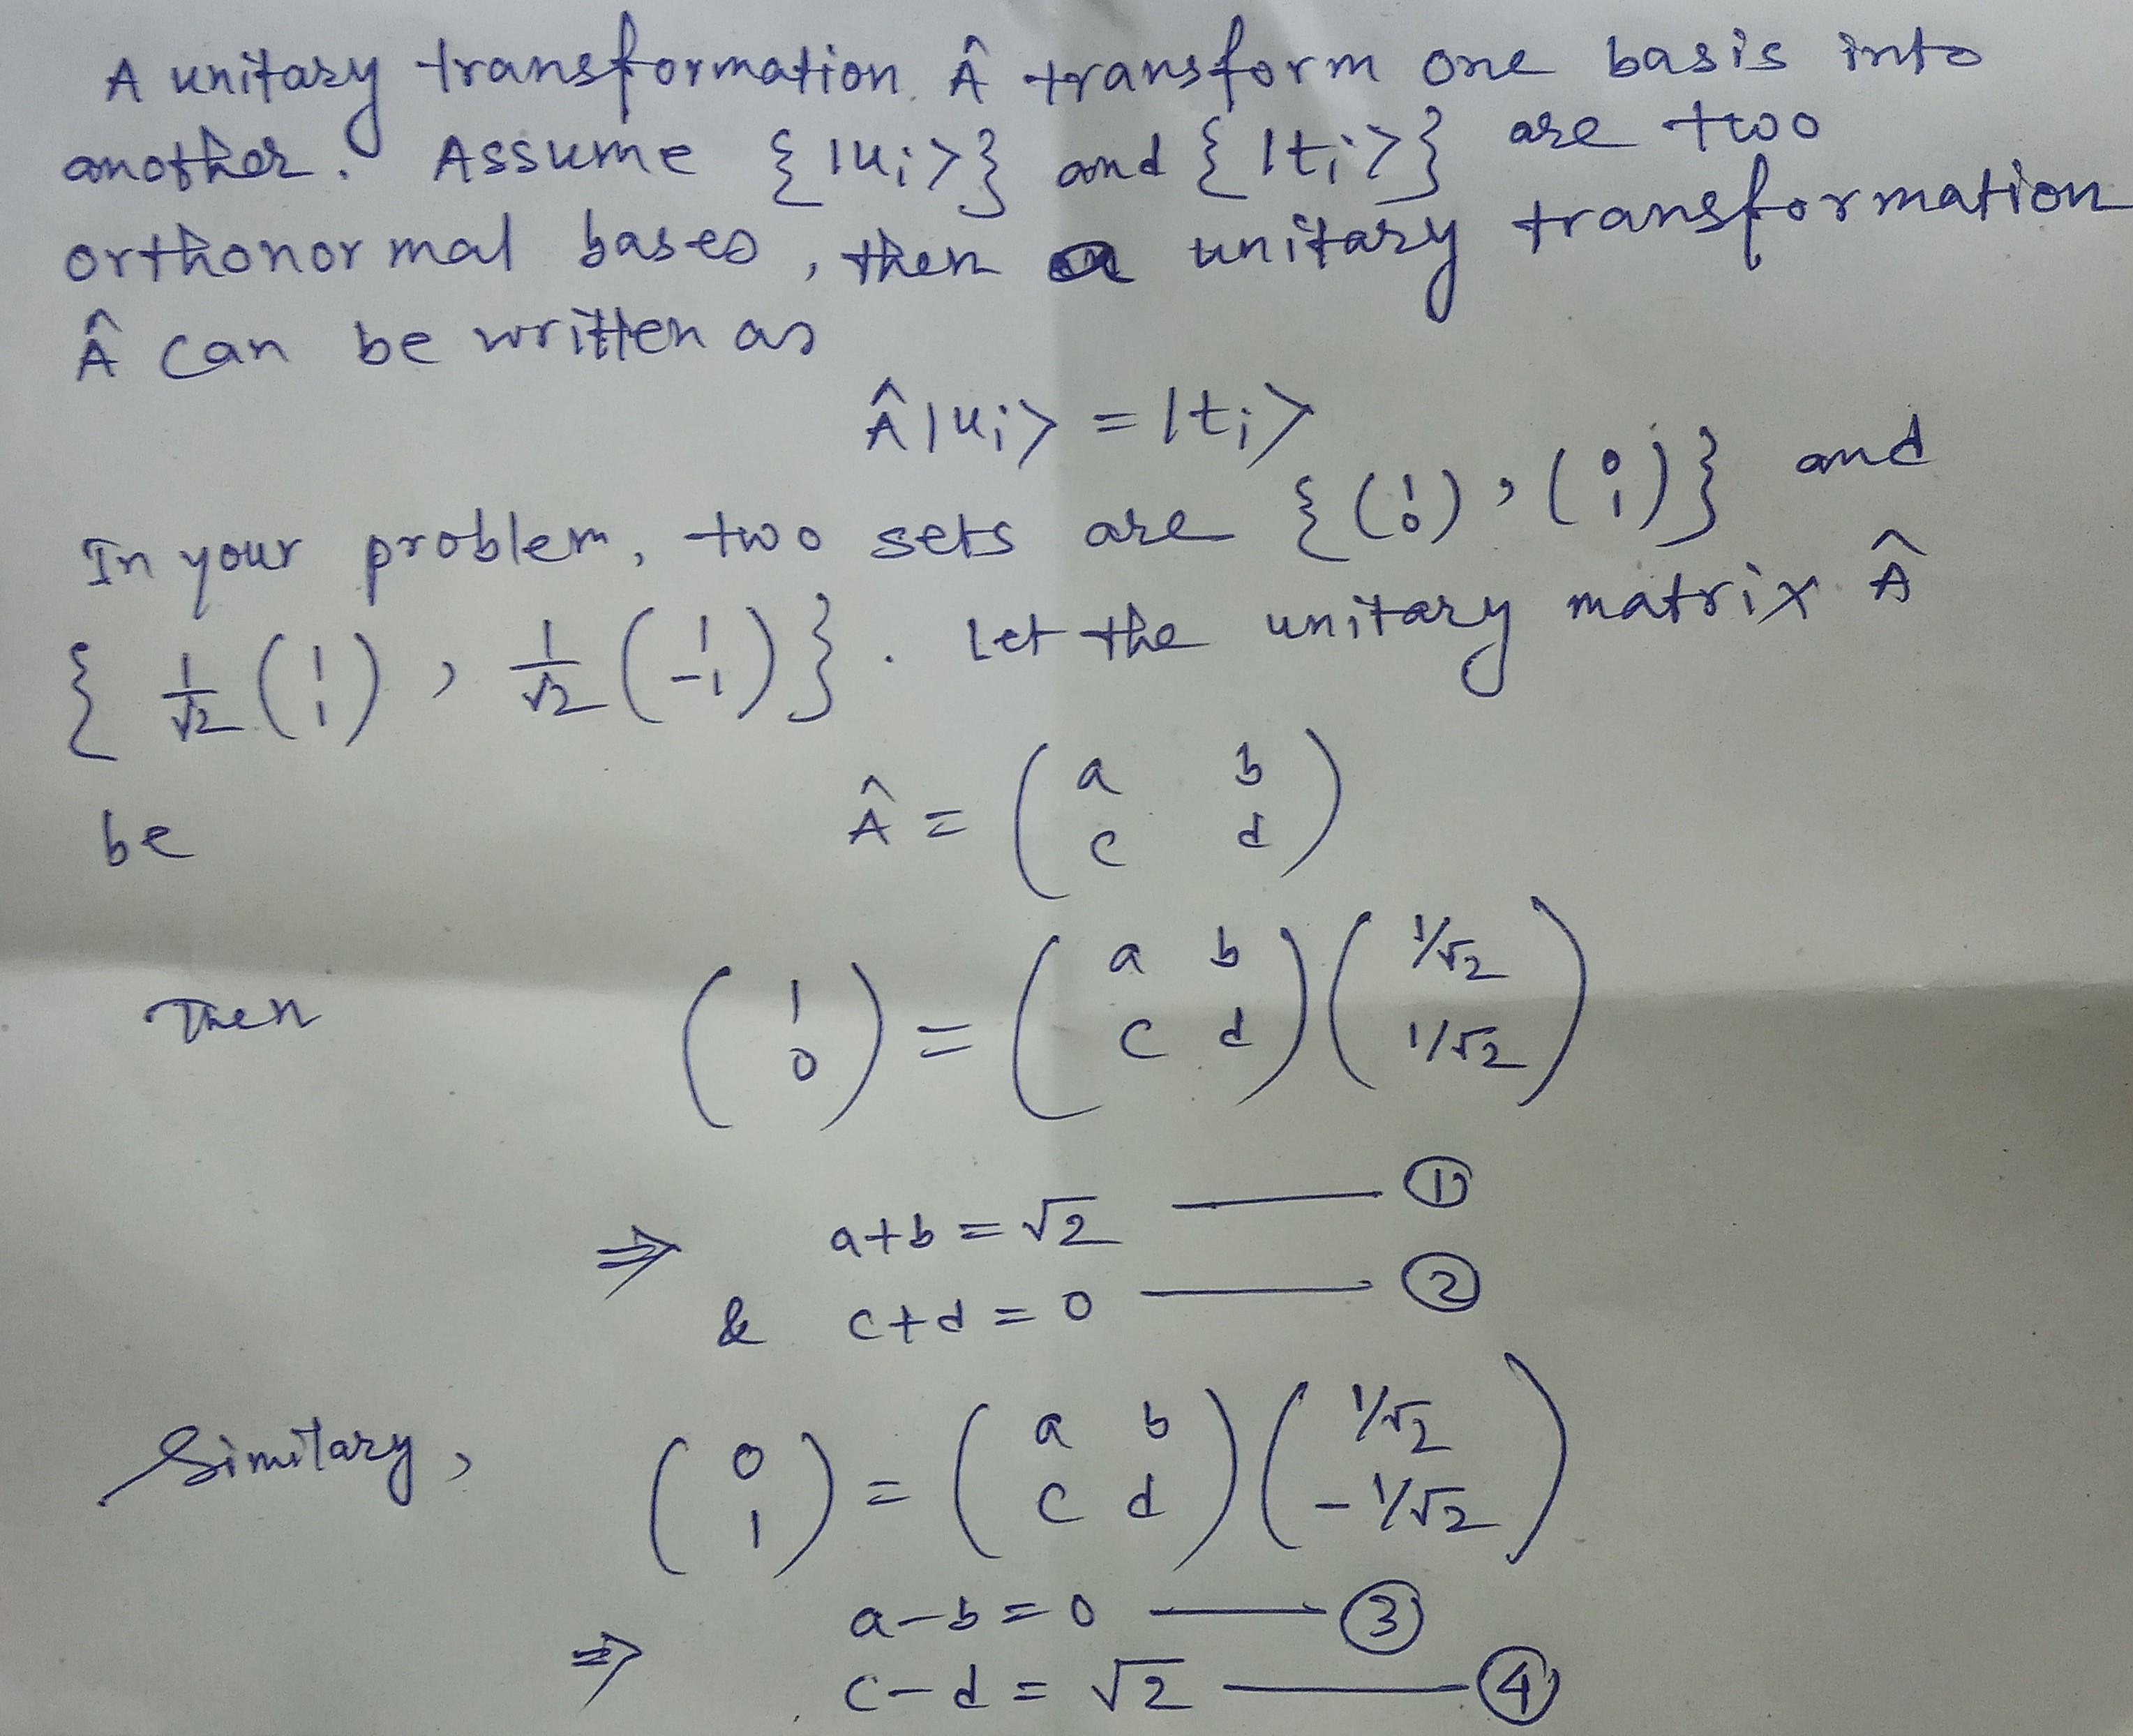 A unitary transformation Â transform one basis into
another. Assume {|uᵢ>} and {|tᵢ>} are two
orthonormal bases, then a unitary transformation
Â can be written as
Â|uᵢ> = |tᵢ>
In your problem, two sets are {(1 0), (0 1)} and
{1/√2 (1 1), 1/√2 (1 -1)}. Let the unitary matrix Â
be Â = (a b
c d)
Then (1 0) = (a b
c d) (1/√2
1/√2)
⇒ a+b = √2 —— ①
& c+d = 0 —— ②
Similary, (0 1) = (a b
c d) (1/√2
-1/√2)
⇒ a-b = 0 —— ③
c-d = √2 —— ④